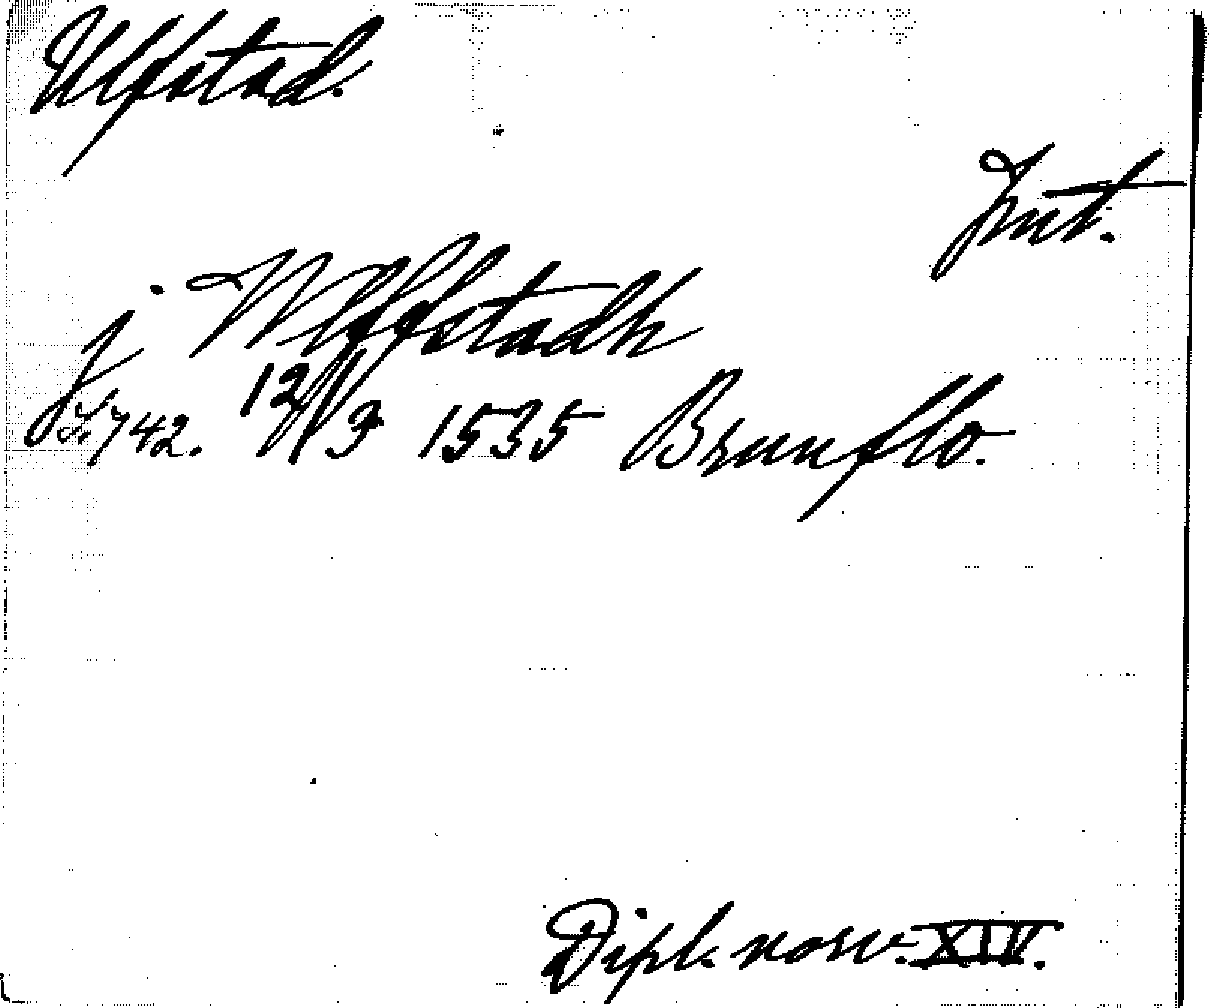 Ulfstad.
Jmt.
j Wlffstadh
s. 742. 12/3 1535 Brunflo.
Dipl. norv. XIV.